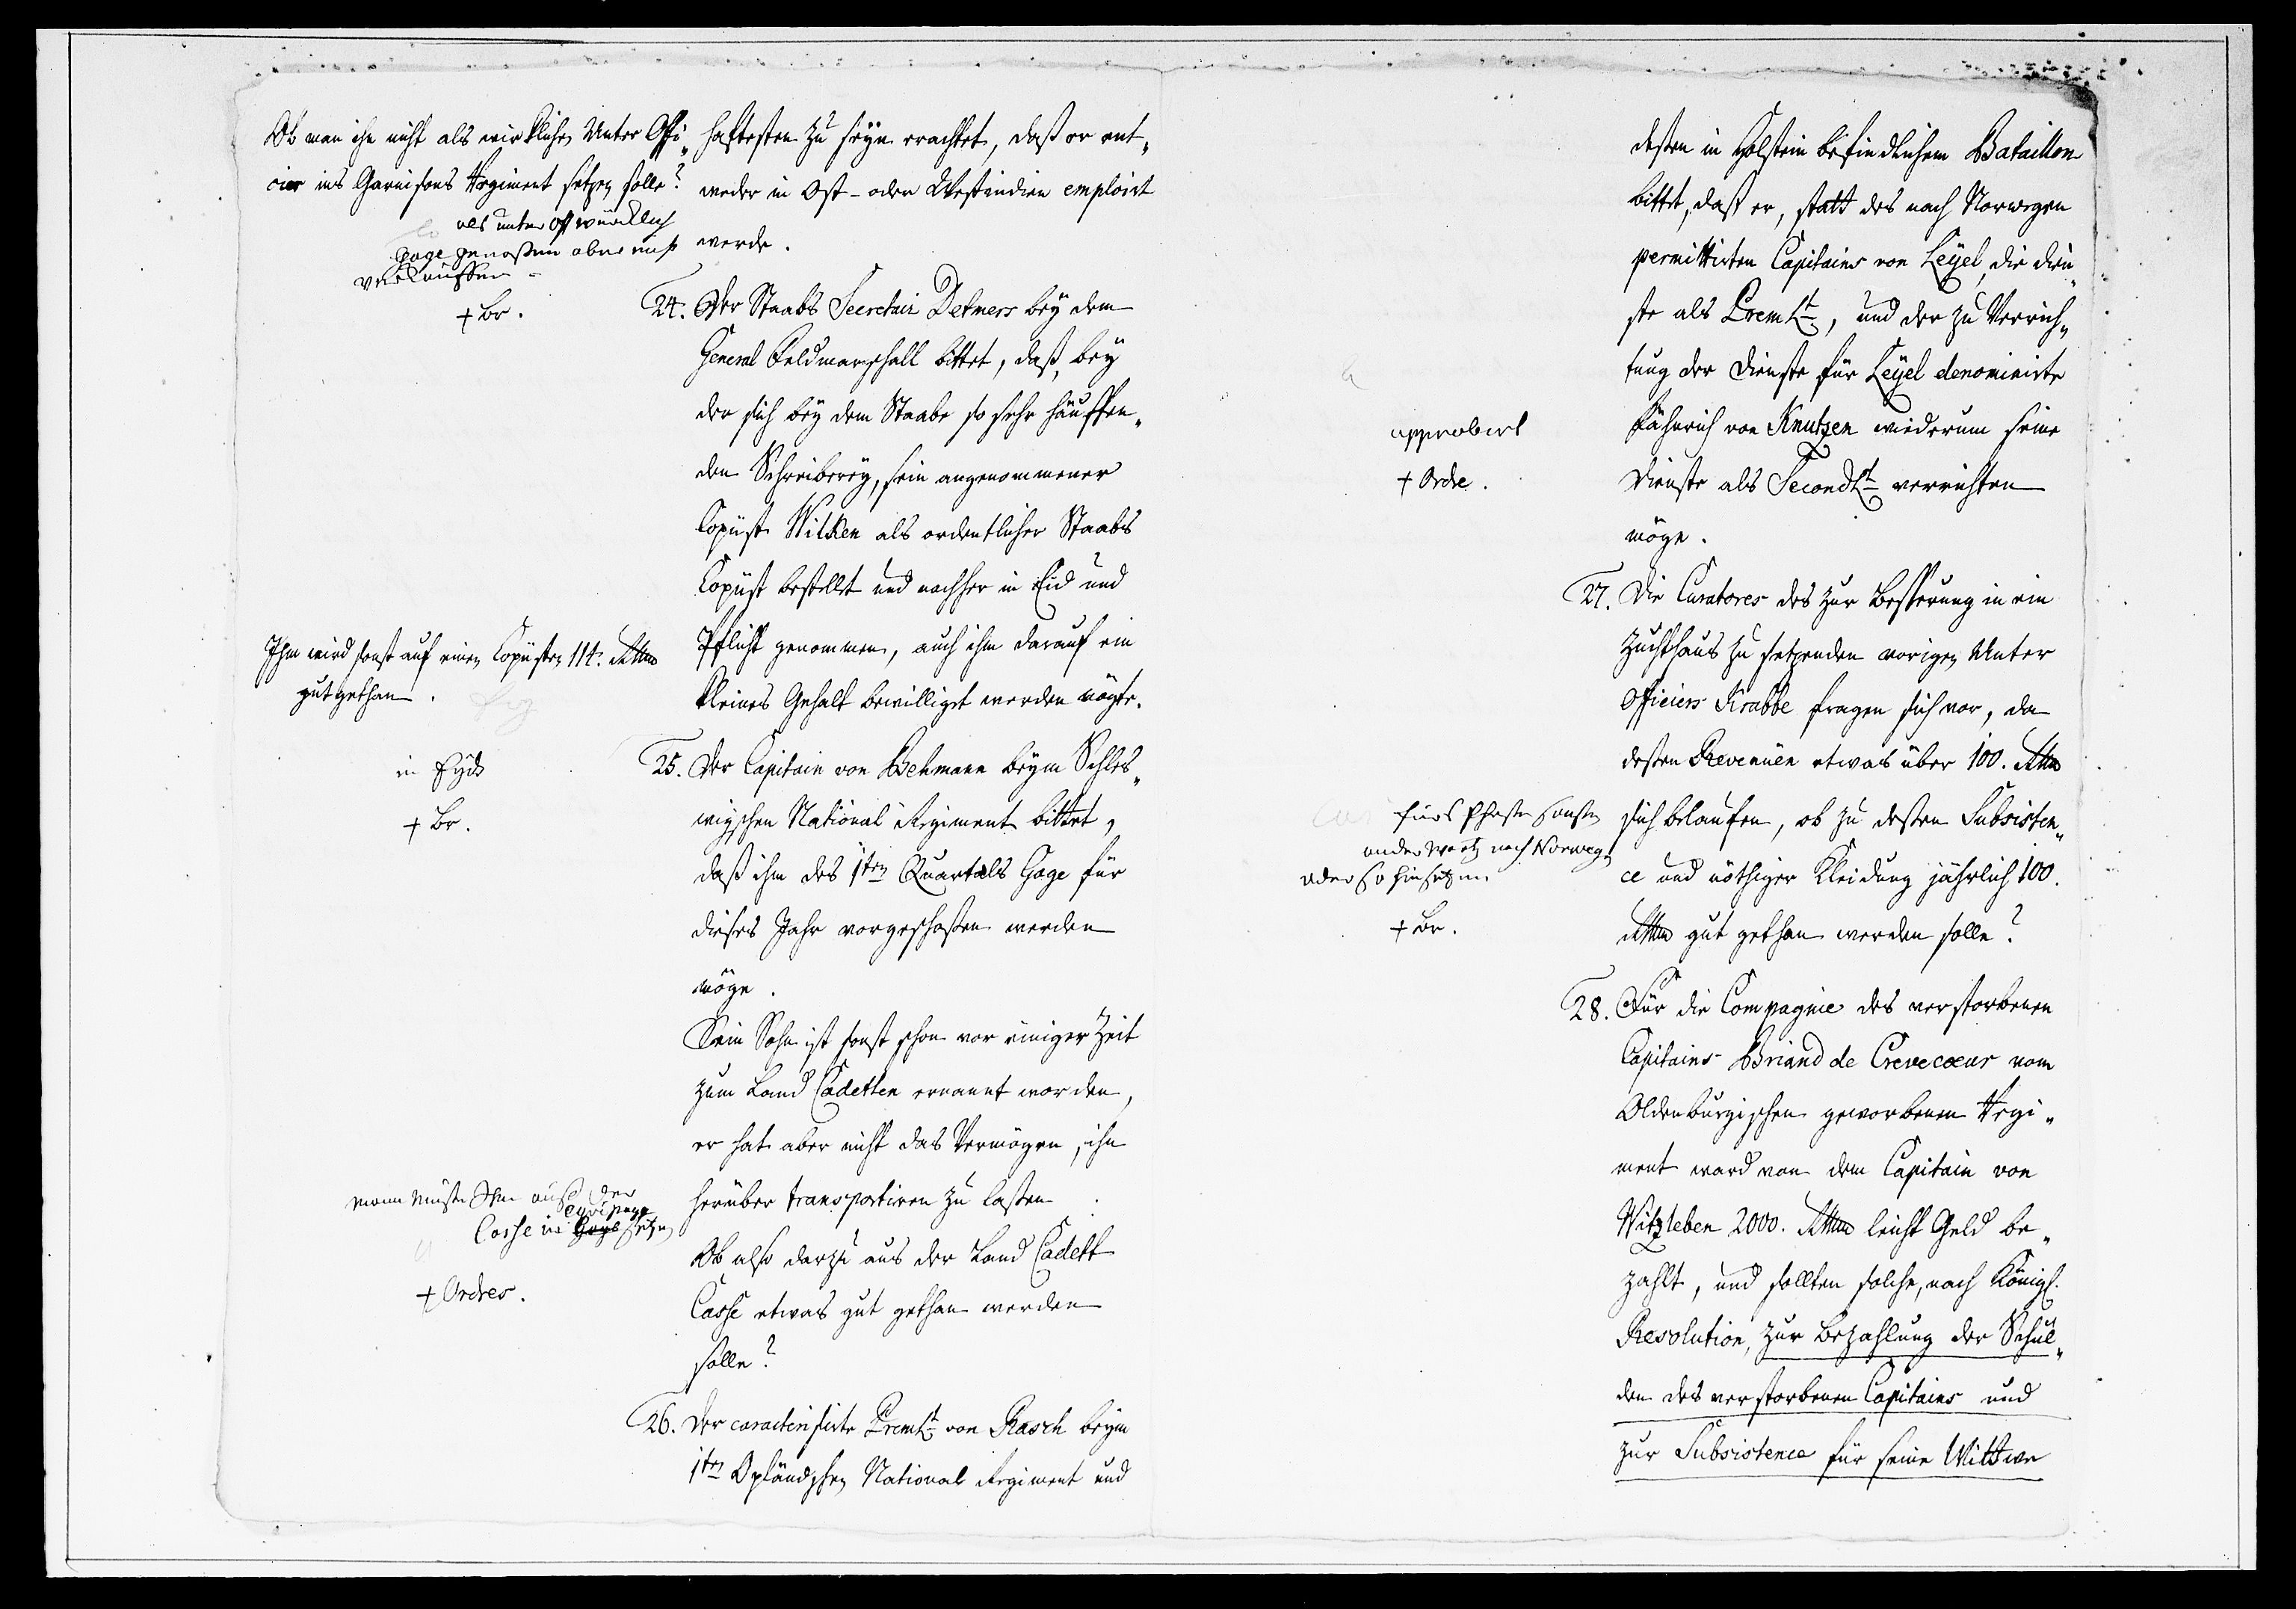 Ob man ihn nicht als wirklichen Unter Offi„
cier ins Garnisons Regiment setzen solle?
als unter off würcklich
gage genoßen aber nicht
verkauffen
+ Br.
haftesten zu seyn erachtet, daß er ent„
weder in Ost- oder Westindien emploirt
werde.
24. Der Staabs Secretair Detmers bey dem
General Feldmarschall bittet, daß, bey
der sich bey dem Staabe so sehr häuffen„
den Schreiberey, sein angenommener
Copiist Wilken als ordentlicher Staabs
Copiist bestellt und nachher in Eid und
Pflicht genommen, auch ihm darauf ein
kleines Gehalt bewilliget werden mögte.
Ihm wird sonst auf einen Copiisten 114. Rthlr
gut gethan.
in Eyds
+ Br.
25. Der Capitain von Behmann beym Schles„
wigschen National Regiment bittet,
daß ihm des 1ten Quartals Gage für
dieses Jahr vorgeschoßen werden
möge.
Sein Sohn ist sonst schon vor einiger Zeit
zum Land Cadetten ernannt worden,
er hat aber nicht das Vermögen, ihn
herüber transportiren zu laßen.
Ob also darzu aus der Land Cadett
Casse etwas gut gethan werden
solle?
mann müste Ihm auß der
Casse in equipage setzen
+ Ordres.
26. Der caracterisirte Premlt von Rasch beym
1ten Opländschen National Regiment und
deßen in Holstein befindlichem Bataillon
bittet, daß er, statt des nach Norwegen
permittirten Capitains von Leyel, die Dien„
ste als Premlt, und der zu Verrich„
tung der Dienste für Leyel denominirte
Fähnrich von Knutzen wiederum seine
Dienste als Secondlt verrichten
möge.
approbirt
+ Ordre.
27. Die Curatores des zur Beßerung in ein
Zuchthaus zu setzenden vorigen Unter
Officiers Krabbe fragen sich vor, da
deßen Revenüen etwas über 100. Rthlr
sich belaufen, ob zu deßen Subsisten„
ce und nöthiger Kleidung jährlich 100.
Rthlr gut gethan werden solle?
fürs sonsten
ander wertz nach Norwegen
oder so hinsetzen
+ Br.
28. Für die Compagnie des verstorbenen
Capitains Briand de Crevecoeur vom
Oldenburgischen geworbenen Regi„
ment ward von dem Capitain von
Witzleben 2000. Rthlr leicht Geld be„
zahlt, und sollten solche, nach Königl.
Resolution, zur Bezahlung der Schul„
den des verstorbenen Capitains und
zur Subsistence für seine Wittwe